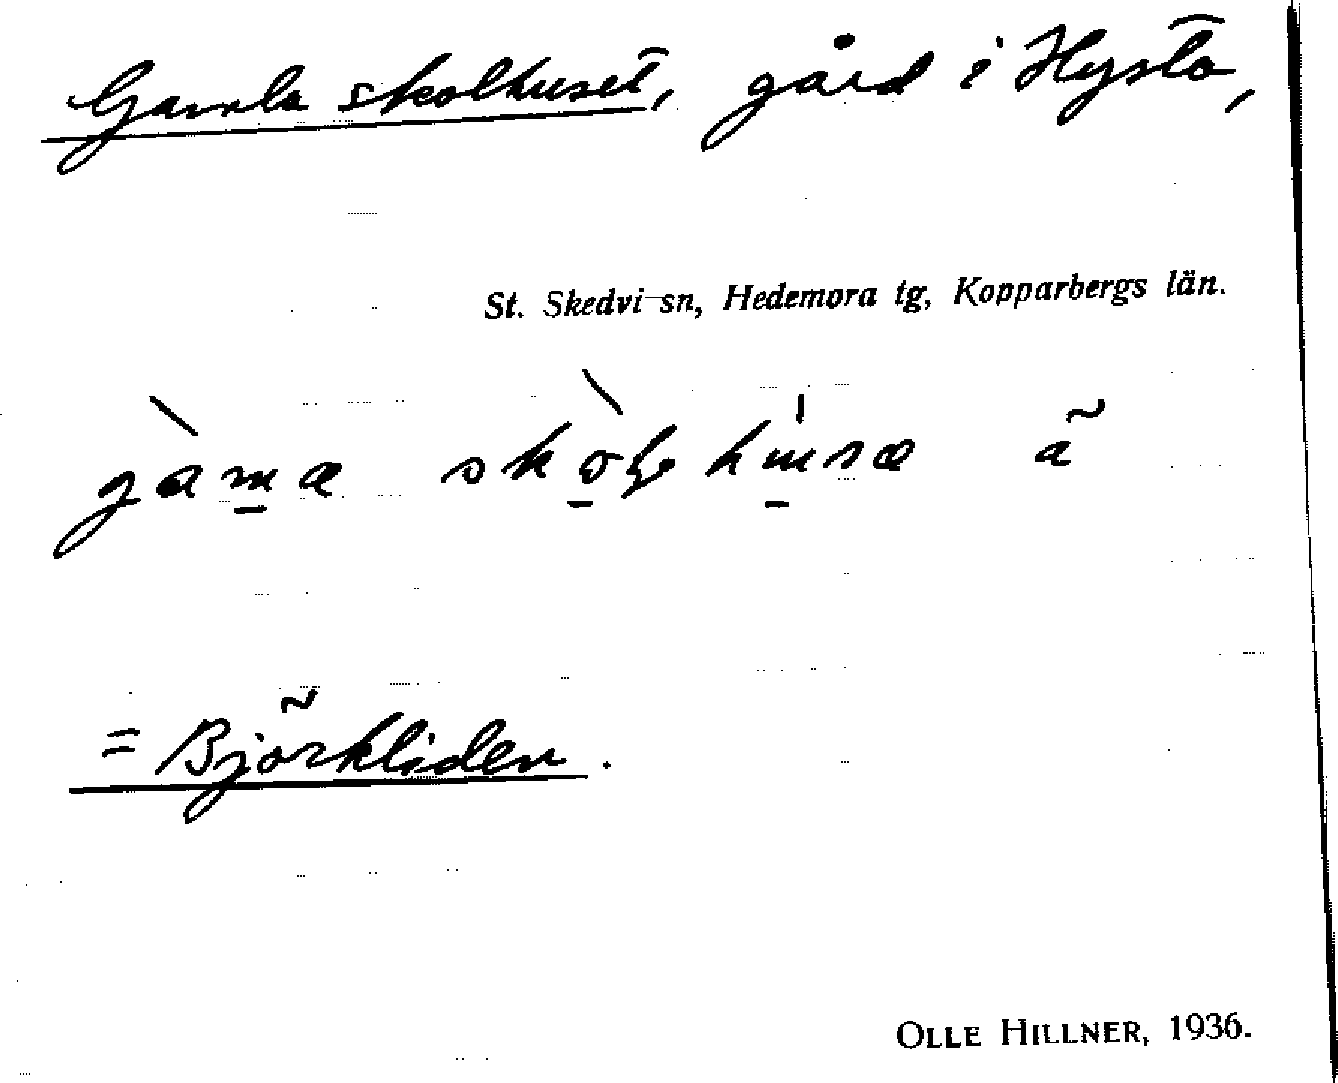 Gamla skolhuset, gård i Hysta,
St. Skedvi sn, Hedemora tg, Kopparbergs län.
= Björkliden.
OLLE HILLNER, 1936.